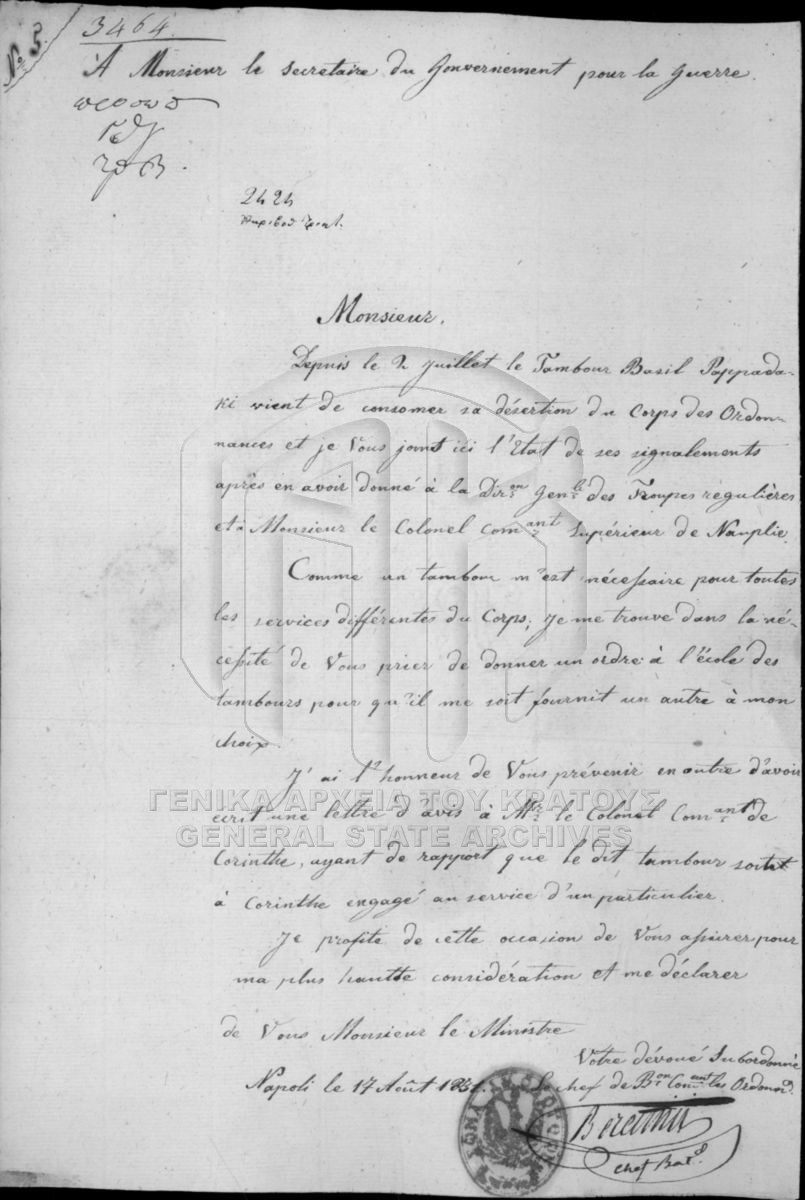 No 5.
3464.
A Monsieur le Secretaire du Gouvernement pour la Guerre.
2424
Monsieur,
Depuis le 2 Juillet le Tambour Basil Pappada-
ki vient de consomer sa désertion du Corps des Ordon-
nances et je Vous joint ici l'Etat de ses signalements
après en avoir donné à la Diron Genle des Troupes regulières
et à Monsieur le Colonel Comant Supérieur de Nauplie.
Comme un tambour m'est nécessaire pour toutes
les services différentes du Corps; Je me trouve dans la né-
cessité de Vous prier de donner un ordre à l'école des
tambours pour qu'il me soit fournit un autre à mon
choix.
J'ai l'honneur de Vous prévenir en outre d'avoir
ecrit une lettre d'avis à Mr le Colonel Comant de
Corinthe, ayant de rapport que le dit tambour soit
à Corinthe engagé au service d'un particulier.
Je profite de cette occasion de Vous assurer pour
ma plus hautte considération et me déclarer
de Vous Monsieur le Ministre
Votre dévoué Subordonné
Napoli le 17 Août 1831. Le chef de Bon Comant les Ordonnd.
chef Batl.
ΓΕΝΙΚΑ ΑΡΧΕΙΑ ΤΟΥ ΚΡΑΤΟΥΣ
GENERAL STATE ARCHIVES